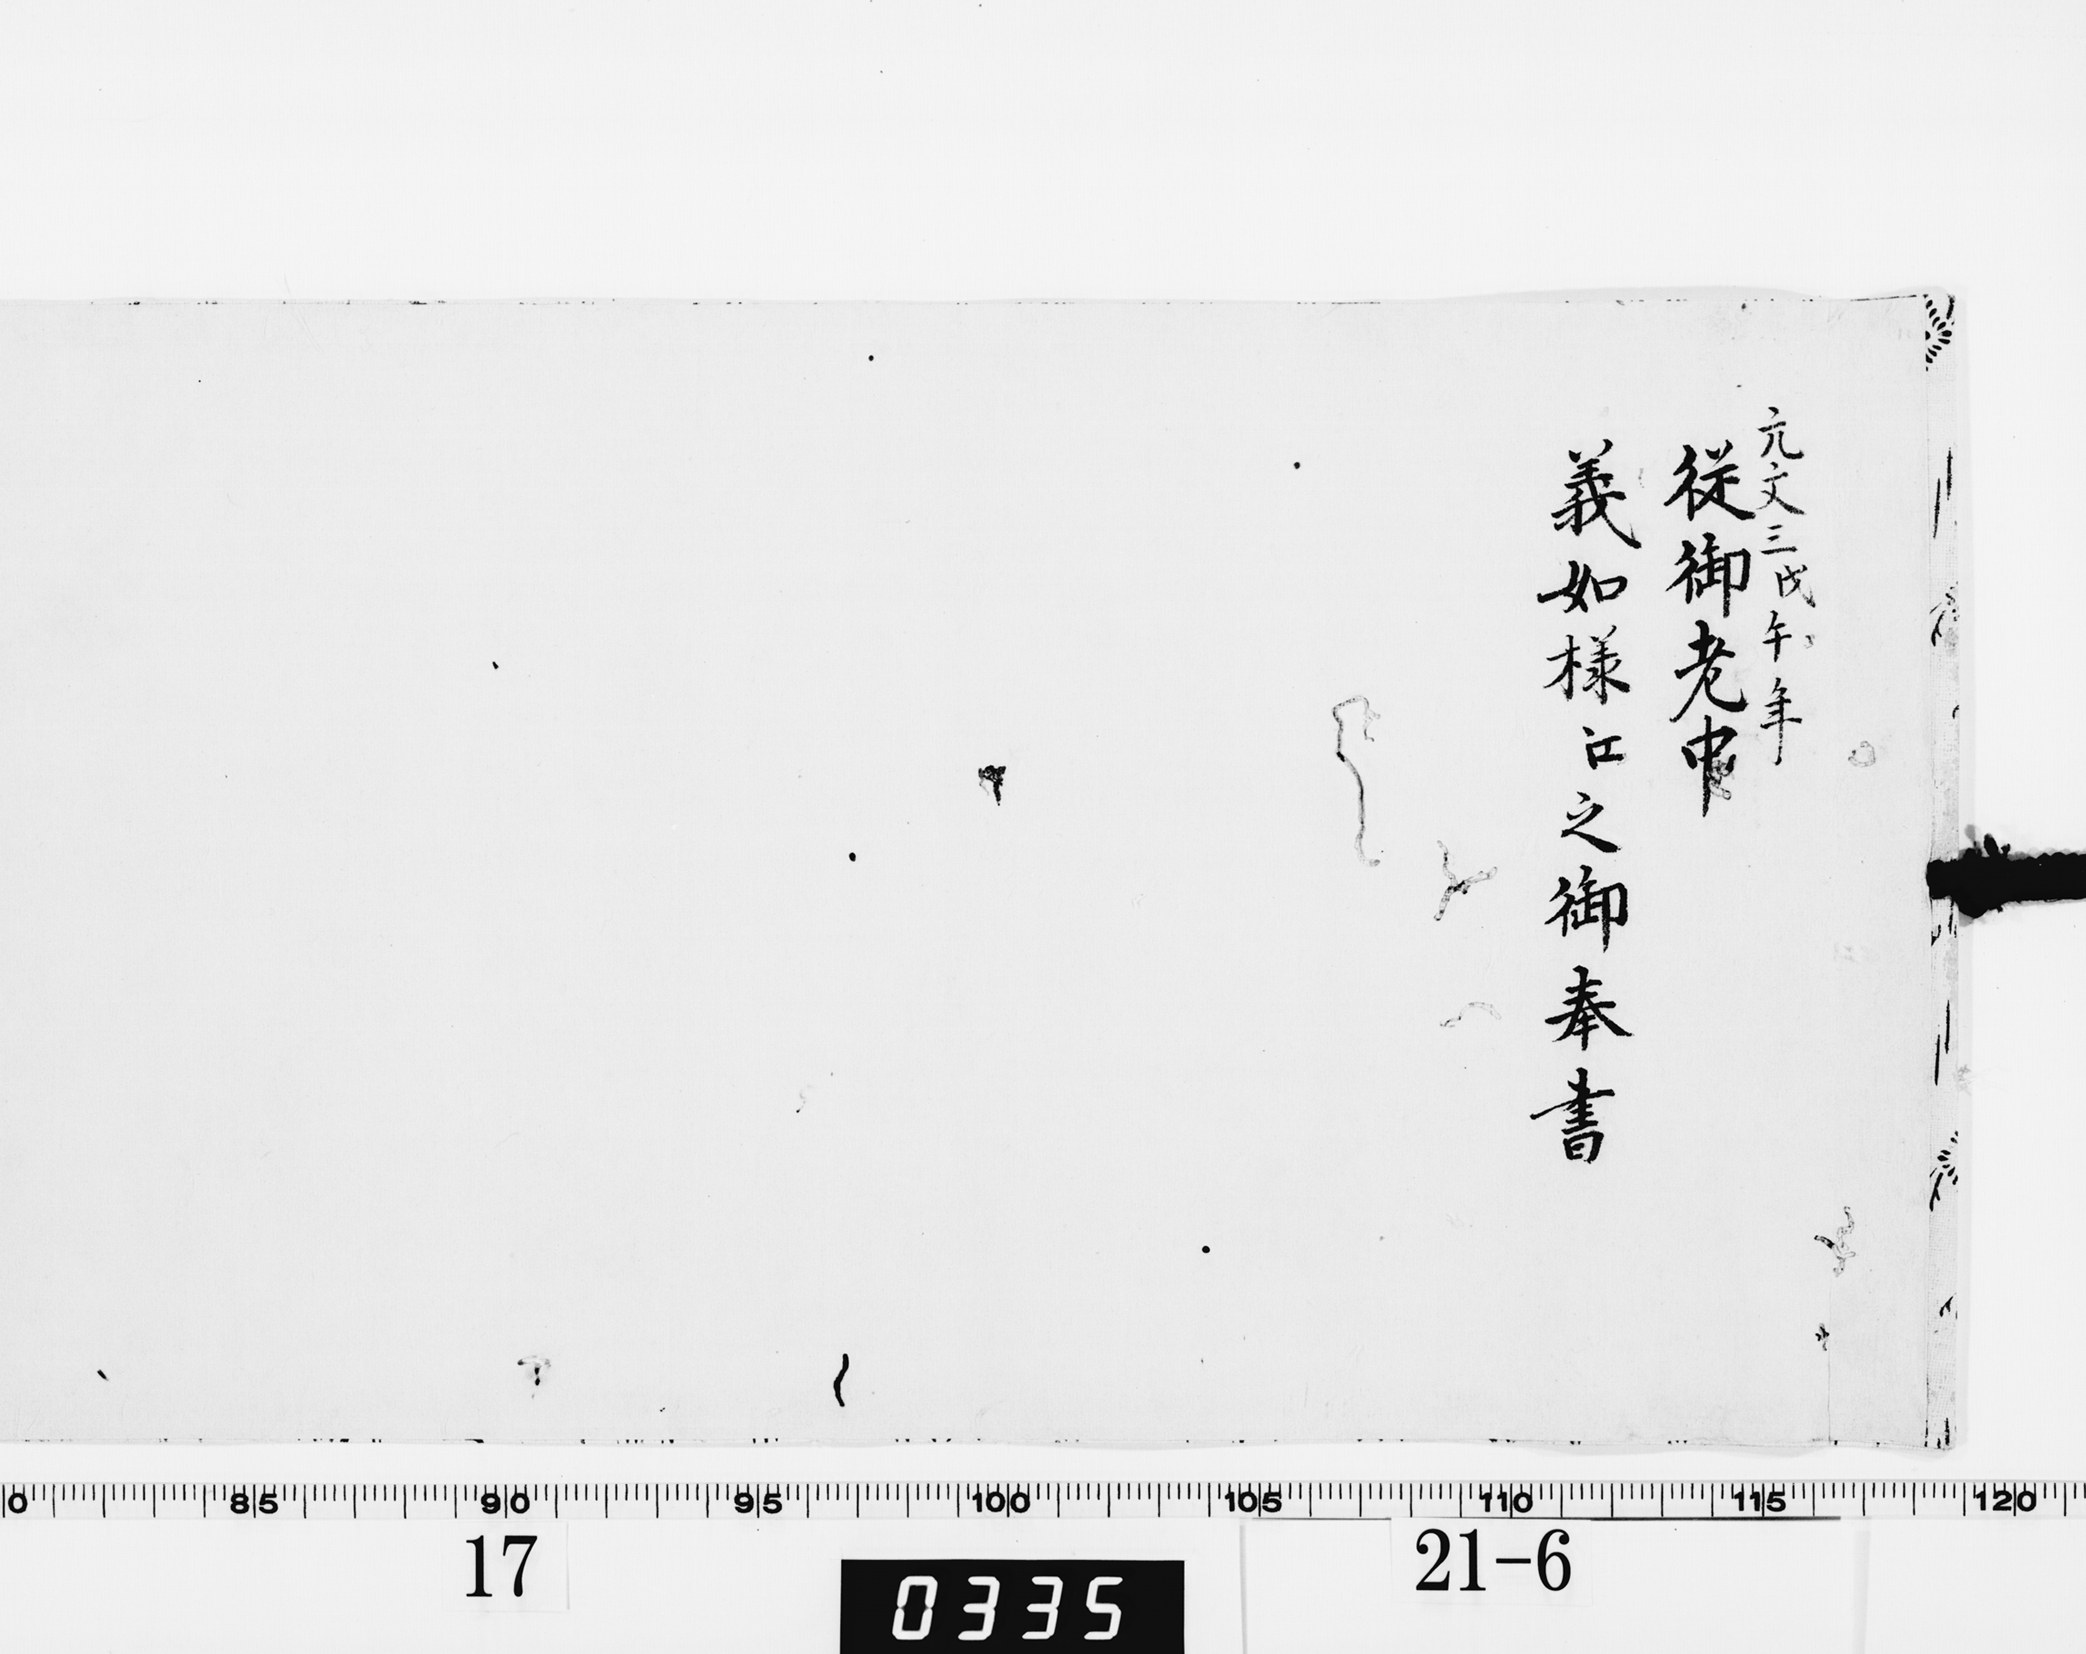 元文三戊午年
従御老中
義如様江之御奉書
0 85 90 95 100 105 110 115 120
17
21-6
0335